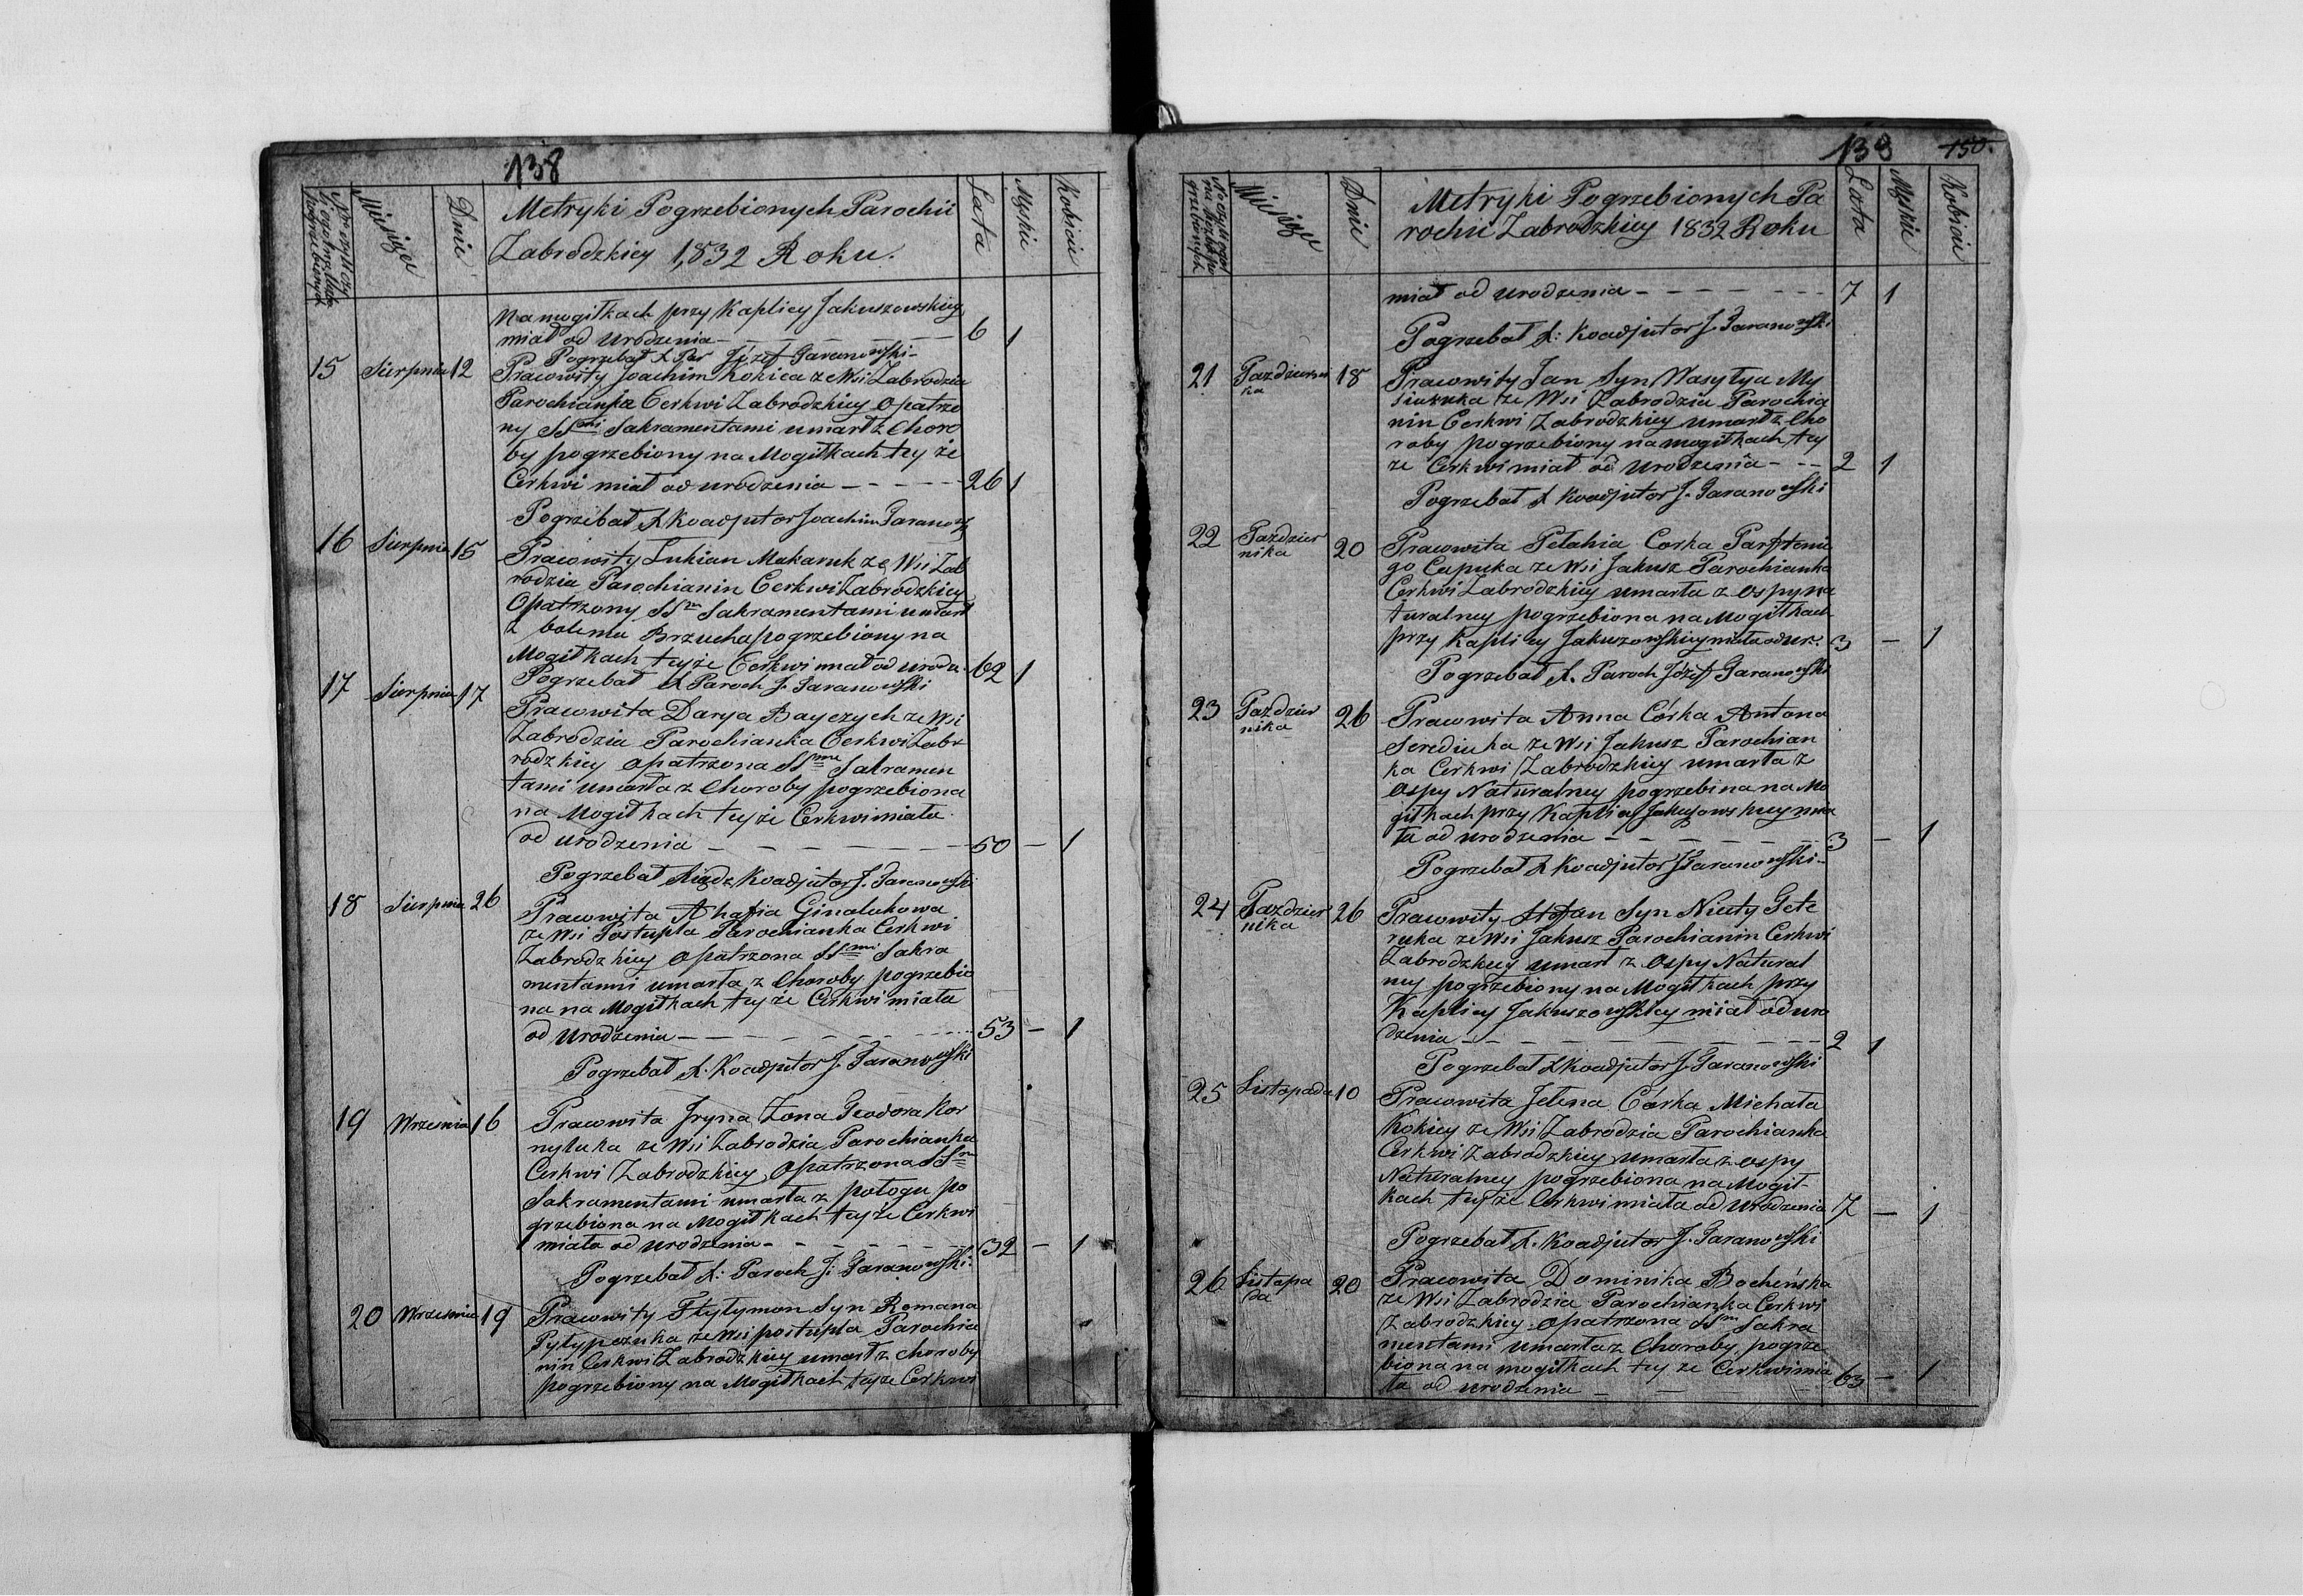 138
Miesiące
Dnie
Metryki Pogrzebionych Parochii
Zabrodzkiey 1832 Roku.
Lata
Męskie
Kobiéie
Na mogiłkach przy Kaplicy Jakuszowskiey
miał od Urodzenia - - - - 6 1
Pogrzebał X Par Józef Taranowski -
15 Sierpnia 12 Pracowity Joachim Kokica ze Wsi Zabrodzia
Parochianka Cerkwi Zabrodzkiey Opatrzo
ny SSmi Sakramentami umarł z Choro
by pogrzebiony na Mogiłkach tey że
Cerkwi miał od urodzenia - - - - - 26 1
Pogrzebał X Koadjutor Joachim Taranows
16 Sierpnia 15 Pracowity Lukian Makaruk ze Wsi Zab
rodzia Parochianin Cerkwi Zabrodzkiey
Opatrzony SSm Sakramentami umarł
z bolenia Brzucha pogrzebiony na
Mogiłkach teyże Cerkwi miał od urodz. 62 1
Pogrzebał X Paroch J. Taranowski
17 Sierpnia 17 Pracowita Darya Bayczych ze Wsi
Zabrodzia Parochianka Cerkwi Zabr
rodzkiey opatrzona SSme Sakramen
tami umarła z Choroby pogrzebiona
na Mogiłkach teyże Cerkwi miała
od urodzenia - - - - - - 50 - 1
Pogrzebał Xiądz Koadjutor J. Taranowski
18 Sierpnia 26 Pracowita Ahafia Ginalukowa
ze Wsi Postupla Parochianka Cerkwi
Zabrodzkiey opatrzona SSmi Sakra
mentami umarła z Choroby pogrzebio
na na Mogiłkach tey że Cerkwi miała
od Urodzenia - - - - - - 53 - 1
Pogrzebał X. Koadjutor J. Taranowski
19 Wrzesnia 16 Pracowita Jryna Zona Teodora Kor
nyluka ze Wsi Zabrodzia Parochianka
Cerkwi Zabrodzkiey Opatrzona SSm
Sakramentami umarła z połogu po
grzebiona na Mogiłkach tey że Cerkwi
miała od urodzenia - - - - - - 32 - 1
Pogrzebał X: Paroch J: Taranowski.
20 Wrzesnia 19 Pracowity Fłytymon Syn Romana
Pytypczuka ze Wsi postupla Parochia
nin Cerkwi Zabrodzkiey umarł z choroby
pogrzebiony na Mogiłkach teyże Cerkwi
150.
Miesiące
Dnie
Metryki Pogrzebionych Pa
rochii Zabrodzkiey 1832 Roku
Lata
Męskie
Kobiéie
miał od Urodzenia - - - - - - - 7 1
Pogrzebał X: Koadjutor J. Taranowski
21 Pazdziernika 18 Pracowity Jan Syn Wasyłya My
siuzuka ze Wsi Zabrodzia Parochia
nin Cerkwi Zabrodzkiey umarł z Cho
roby pogrzebiony na mogiłkach tey
że Cerkwi miał od Urodzenia - - - 2 1
Pogrzebał X Koadjutor J. Taranowski
22 Pazdzier
nika 20 Pracowita Pelahia Corka Parfteni
go Capuka ze Wsi Jakusz Parochianka
Cerkwi Zabrodzkiey umarła z ospy na
turalney pogrzebiona na Mogiłkach
przy Kaplicy Jakuzowskiey miała od ur: 3 - 1
Pogrzebał X. Paroch Józef Taranowski
23 Pazdzier
nika 26 Pracowita Anna Córka Antona
Serediuka ze Wsi Jakusz Parochian
ka Cerkwi Zabrodzkiey umarła z
Ospy Naturalney pogrzebina na Mo
giłkach przy Kaplicy Jakuszowskiey mia
ła od urodzenia - - - - - - 3 - 1
Pogrzebał X Koadjutor J Taranowski -
24 Pazdzier
nika 26 Pracowity Stefan Syn Nikity Pete
ruka ze Wsi Jakusz Parochianin Cerkwi
Zabrodzkiey umarł z Ospy Natural
ney pogrzebiony na Mogiłkach przy
Kaplicy Jakuszowskiey miał od uro
dzenia - - - - - - - - 2 1
Pogrzebał X Koadjutor J. Taranowski
25 Listopada 10 Pracowita Jełena Córka Michała
Kokiey ze Wsi Zabrodzia Parochianka
Cerkwi Zabrodzkiey umarła z ospy
Naturalney pogrzebiona na Mogił-
kach tey że Cerkwi miała od Urodzenia 7 - 1
Pogrzebał X. Koadjutor J. Taranowski
26 Listopa
da 20 Pracowita Dominika Bocheńska
ze Wsi Zabrodzia Parochianka Cerkwi
Zabrodzkiey opatrzona SSmi Sakra
mentami umarła z Choroby pogrze
biona na mogiłkach tey że Cerkwi mia
ła od urodzenia - - - - 63 - 1